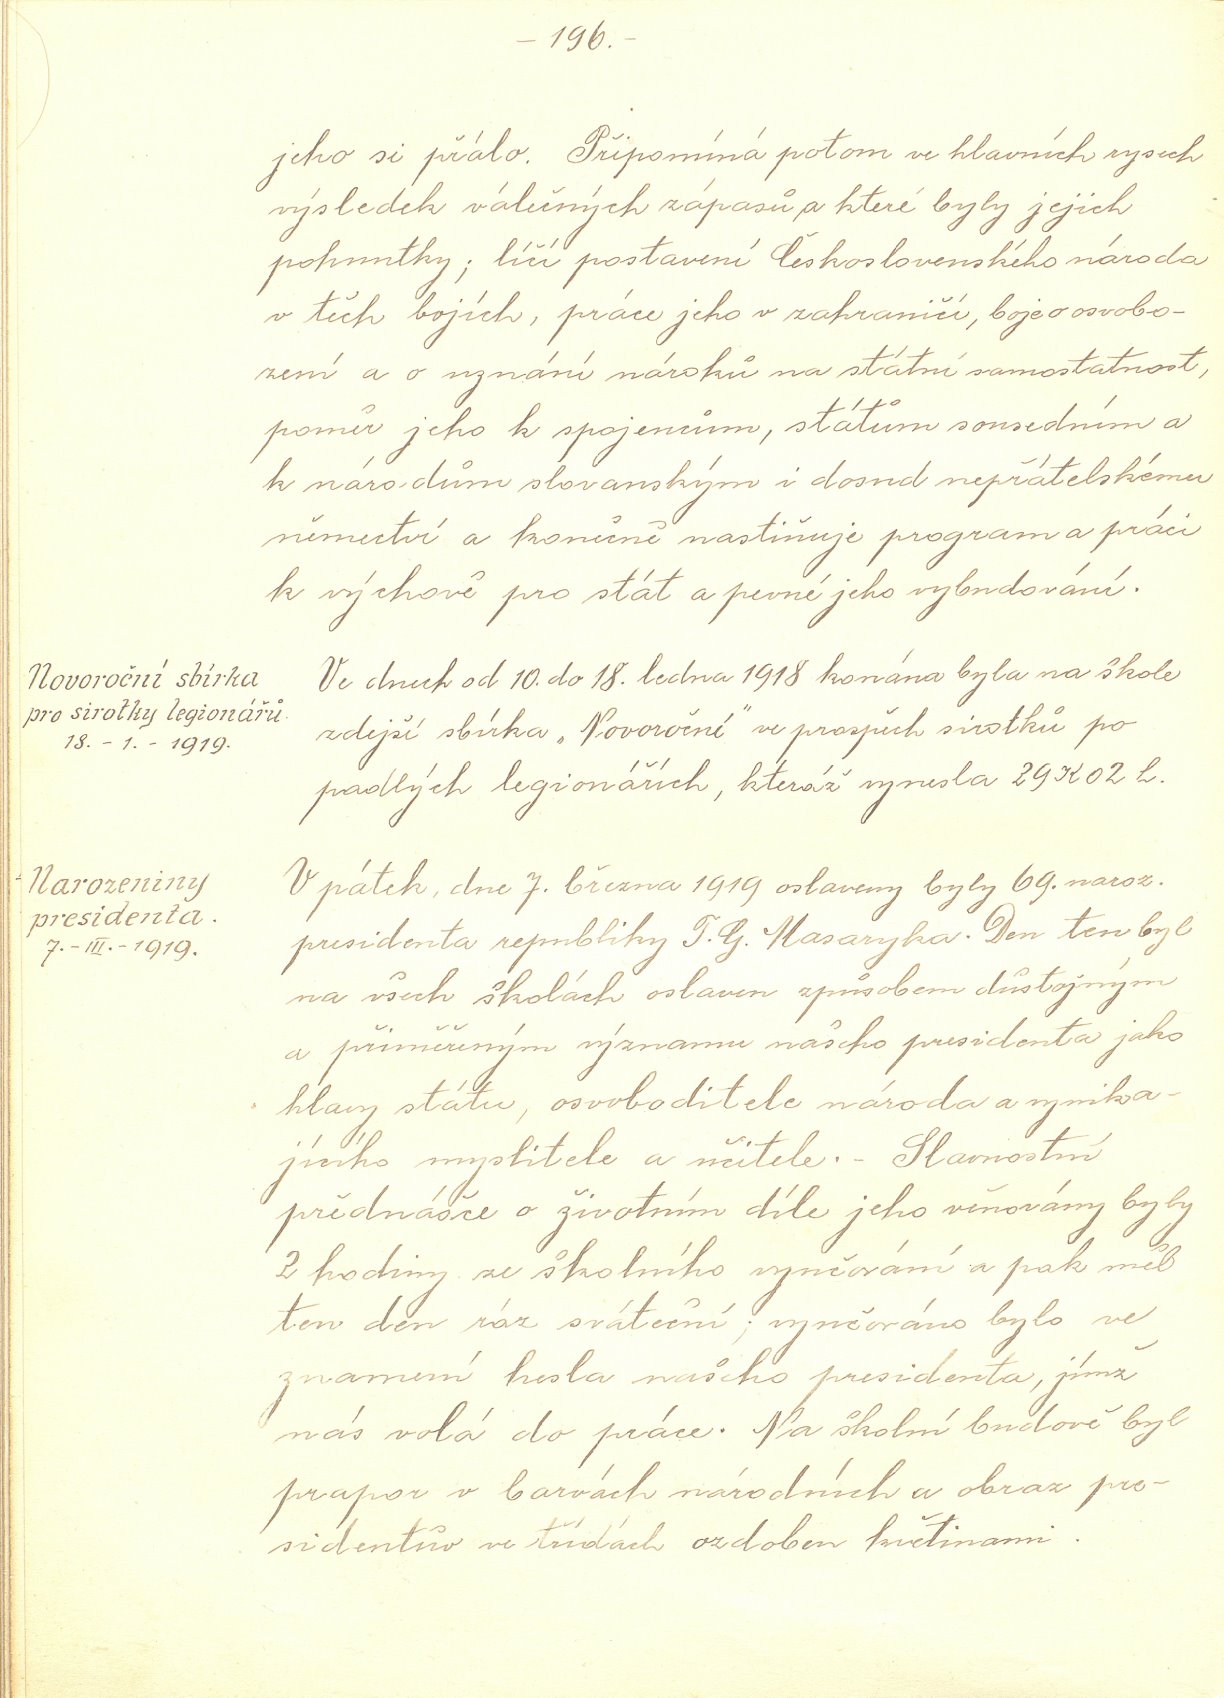 - 196. -
jeho si přálo. Připomíná potom ve hlavních rysech
výsledek válečných zápasů, a které byly jejich
pohnutky; líčí postavení Československého národa
v těch bojích, práce jeho v zahraničí, boje o osvobo-
zení a o uznání nároků na státní samostatnost,
poměr jeho k spojencům, státům sousedním a
k národům slovanským i dosud nepřátelskému
němectví a konečně nastiňuje program a práci
k výchově pro stát a pevné jeho vybudování.
Novoroční sbírka
pro sirotky legionářů
18. - 1. - 1919.
Ve dnech od 10. do 18. ledna 1918 konána byla na škole
zdejší sbírka „Novoroční" ve prospěch sirotků po
padlých legionářích, kteráž vynesla 29 K 02 h.
Narozeniny
presidenta.
7. - III. - 1919.
V pátek, dne 7. března 1919 oslaveny byly 69. naroz.
presidenta republiky T. G. Masaryka. Den ten byl
na všech školách oslaven způsobem důstojným
a přiměřeným významu našeho presidenta jako
hlavy státu, osvoboditele národa a vynika-
jícího myslitele a učitele. - Slavnostní
přednášce o životním díle jeho věnovány byly
2 hodiny ze školního vyučování a pak měl
ten den ráz sváteční; vyučováno bylo ve
znamení hesla našeho presidenta, jímž
nás volá do práce. Na školní budově byl
prapor v barvách národních a obraz pre-
sidentův ve třídách ozdoben květinami.